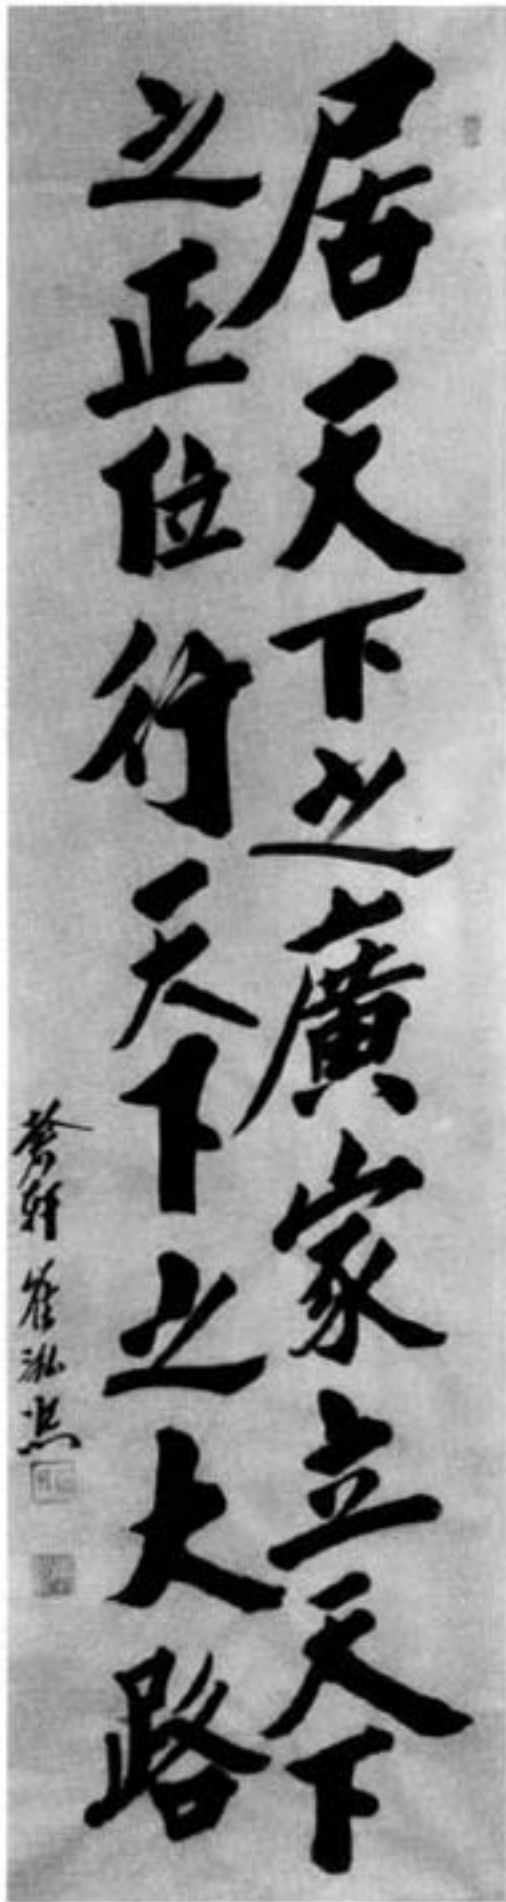 居天下之廣家立天下
之正位行天下之大路
軒 崔泓